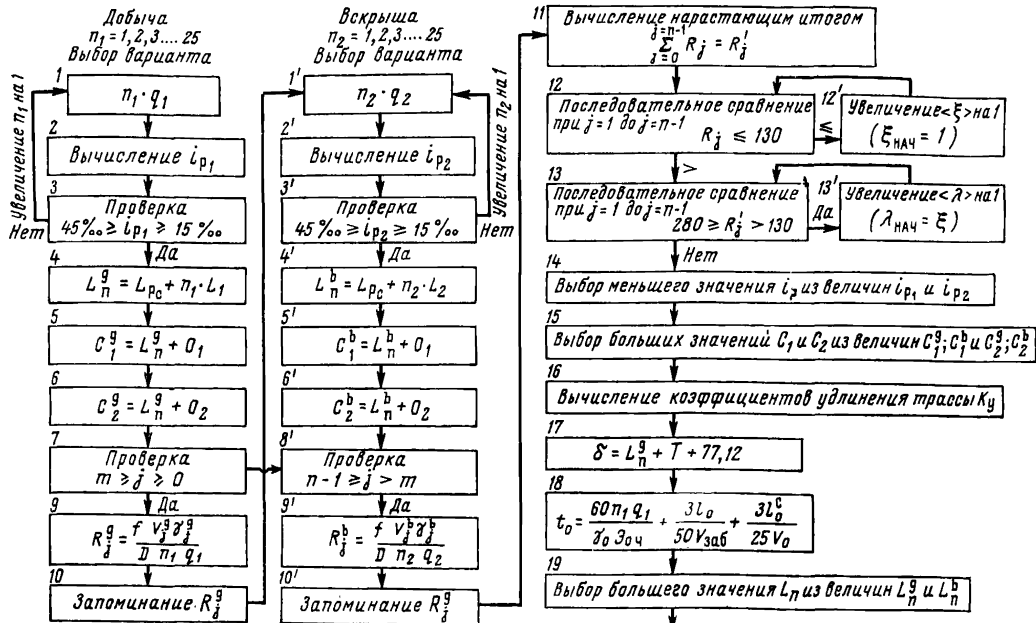 Добыча
n₁ = 1, 2, 3.... 25
Выбор варианта
Увеличение n₁ на 1
1
n₁ · q₁
2
Вычисление i_p₁
3
Проверка
45‰ ≥ i_p₁ ≥ 15‰
Нет
Да
4
L_n^g = L_pc + n₁ · L₁
5
C_1^g = L_n^g + O₁
6
C_2^g = L_n^g + O₂
7
Проверка
m ≥ j ≥ 0
Да
9
R_j^g = f V_j^g γ_j^g / D n₁ q₁
10
Запоминание R_j^g
Вскрыша
n₂ = 1, 2, 3.... 25
Выбор варианта
Увеличение n₂ на 1
1'
n₂ · q₂
2'
Вычисление i_p₂
3'
Проверка
45‰ ≥ i_p₂ ≥ 15‰
Нет
Да
4'
L_n^b = L_pc + n₂ · L₂
5'
C_1^b = L_n^b + O₁
6'
C_2^b = L_n^b + O₂
8'
Проверка
n-1 ≥ j > m
Да
9'
R_j^b = f V_j^b γ_j^b / D n₂ q₂
10'
Запоминание R_j^g
11
Вычисление нарастающим итогом
j=n-1
∑ R_j = R_j'
j=0
12
Последовательное сравнение
при j=1 до j=n-1
R_j ≤ 130
≤
>
12'
Увеличение <ξ> на 1
(ξ_НАЧ = 1)
13
Последовательное сравнение
при j=1 до j=n-1
280 ≥ R_j' > 130
Да
Нет
13'
Увеличение <λ> на 1
(λ_НАЧ = ξ)
14
Выбор меньшего значения i_p из величин i_p₁ и i_p₂
15
Выбор больших значений C₁ и C₂ из величин C_1^g; C_1^b и C_2^g; C_2^b
16
Вычисление коэффициентов удлинения трассы K_y
17
δ = L_n^g + T + 77,12
18
t₀ = 60 n₁ q₁ / γ₀ Э_оч + 3l₀ / 50 V_заб + 3l_0^c / 25 V₀
19
Выбор большего значения L_n из величин L_n^g и L_n^b